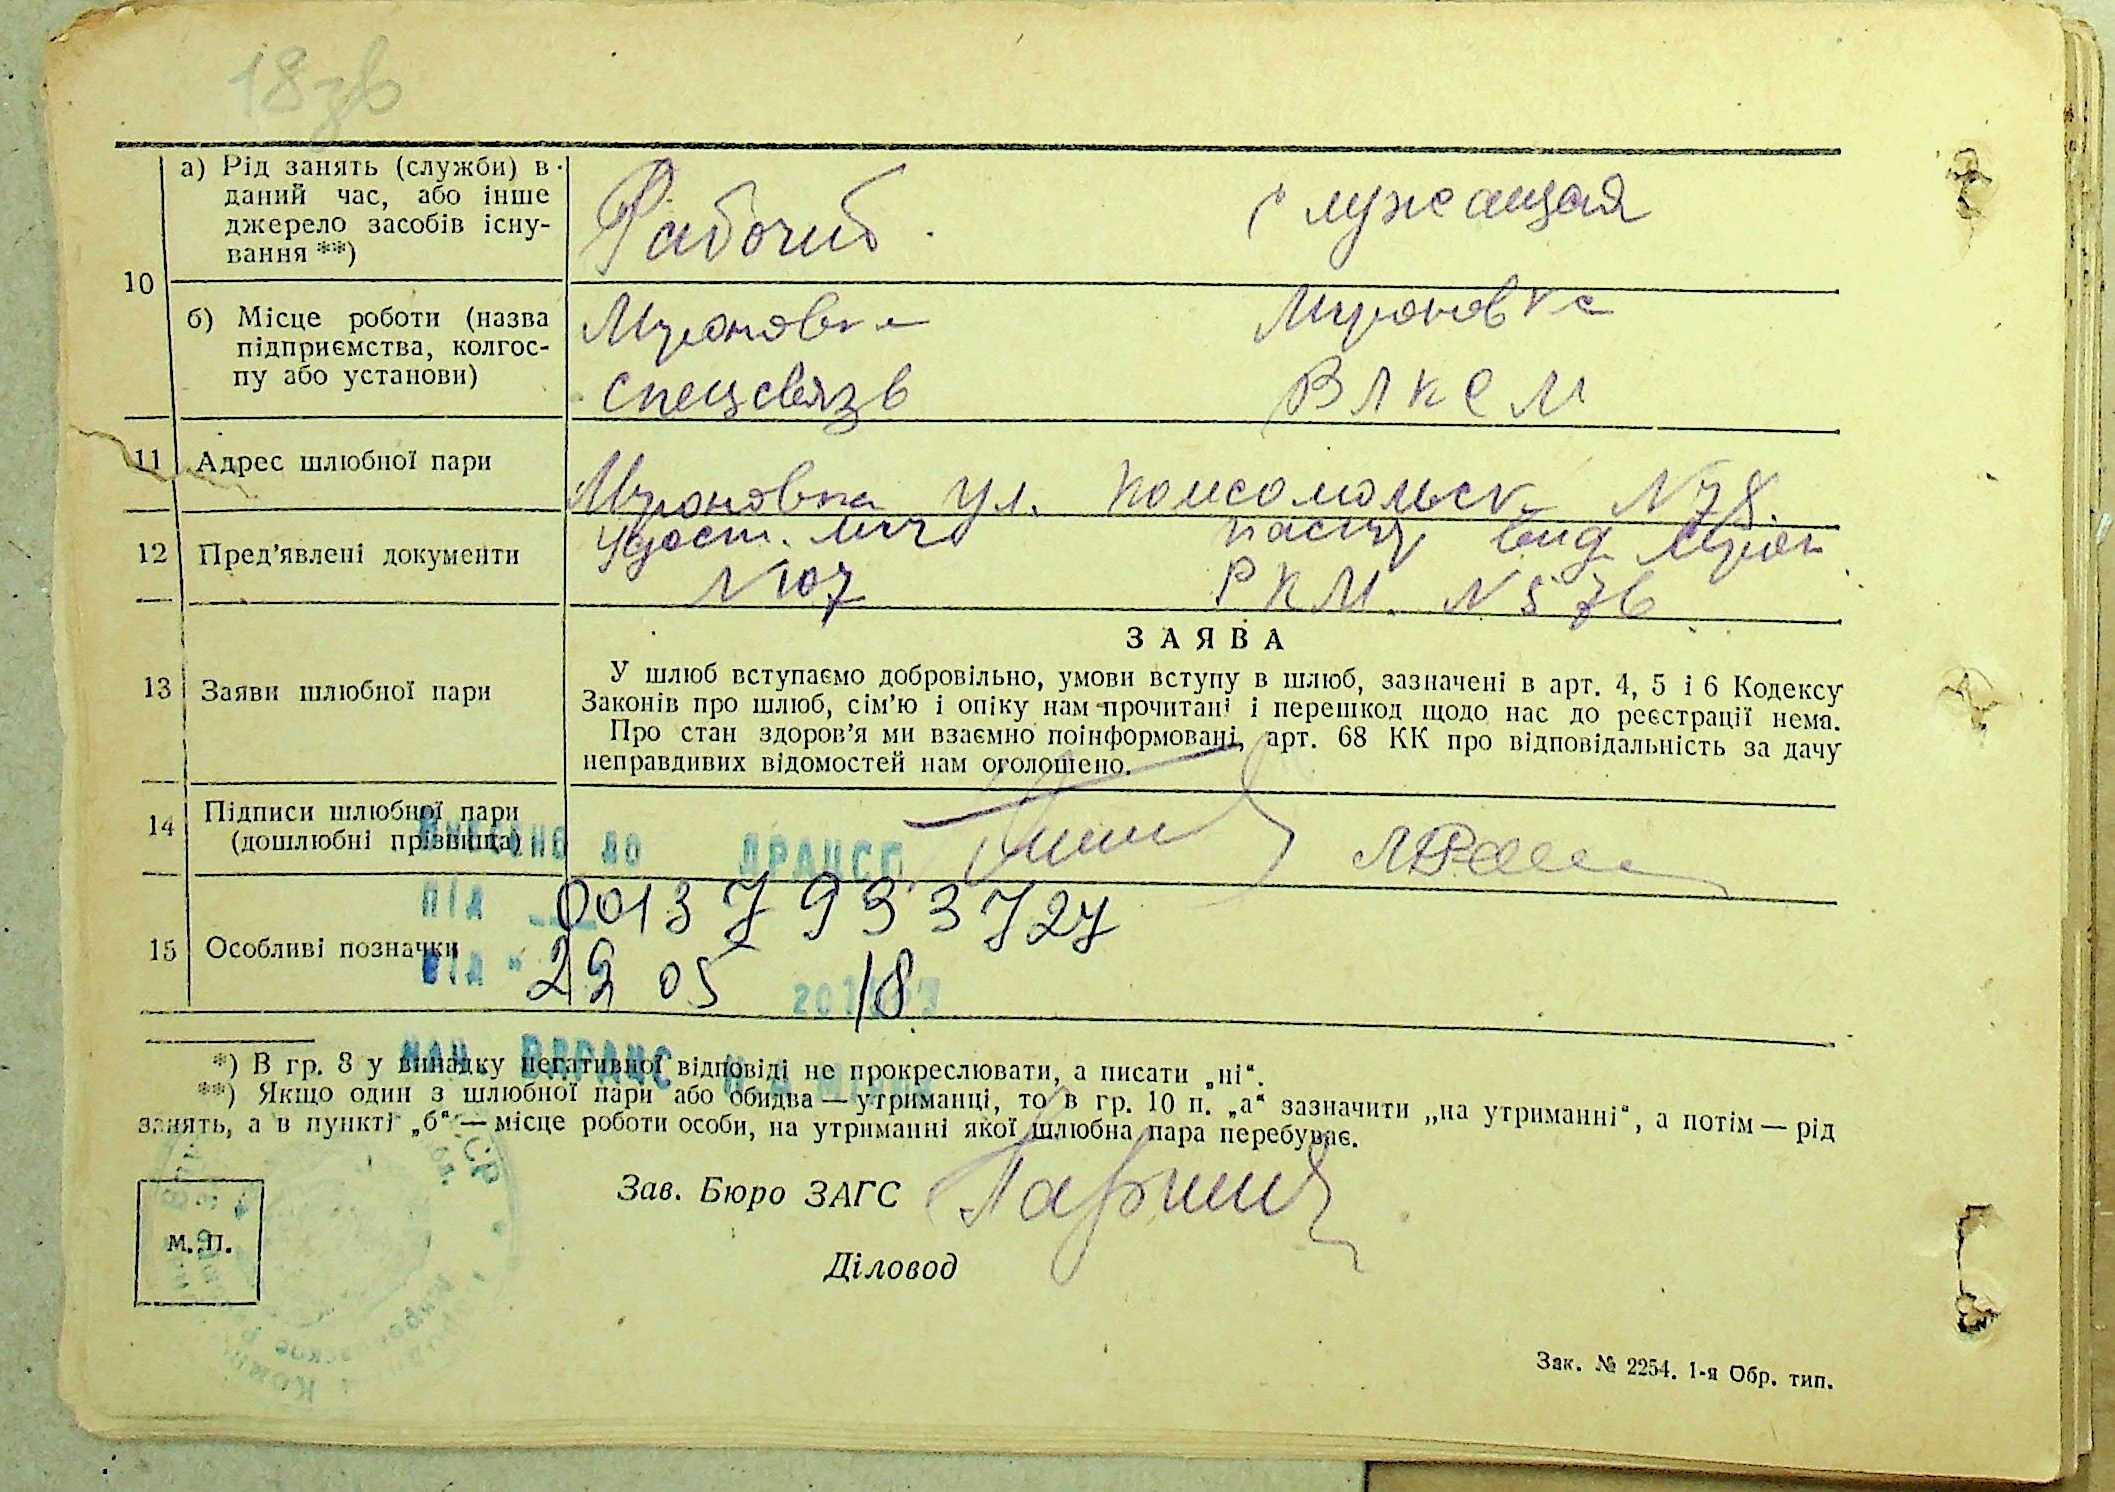 18зв
а) Рід занять (служби) в
даний час, або інше
джерело засобів існу-
вання **)
Рабочий
Служащая
10
б) Місце роботи (назва
підприємства, колгос-
пу або установи)
Мироновка
Мироновка
спецсвязь
ВЛКСМ
11 Адрес шлюбної пари
Мироновка ул. Комсомольск. N 78.
12 Пред'явлені документи
Удост. лич
пасп. выд. Мирон
N 107
РКМ. N 576
ЗАЯВА
13 Заяви шлюбної пари
У шлюб вступаємо добровільно, умови вступу в шлюб, зазначені в арт. 4, 5 і 6 Кодексу
Законів про шлюб, сім'ю і опіку нам прочитані і перешкод щодо нас до реєстрації нема.
Про стан здоров'я ми взаємно поінформовані, арт. 68 КК про відповідальність за дачу
неправдивих відомостей нам оголошено.
14 Підписи шлюбної пари
(дошлюбні прізвища)
Внесено до ДРАЦСГ
під 00137933727
15 Особливі позначки
від " 29 05 2018
*) В гр. 8 у випадку негативної відповіді не прокреслювати, а писати „ні“.
**) Якщо один з шлюбної пари або обидва — утриманці, то в гр. 10 п. „а“ зазначити „на утриманні“, а потім — рід
занять, а в пункті „б“ — місце роботи особи, на утриманні якої шлюбна пара перебуває.
Зав. Бюро ЗАГС
м. п.
Діловод
Зак. № 2254. 1-я Обр. тип.